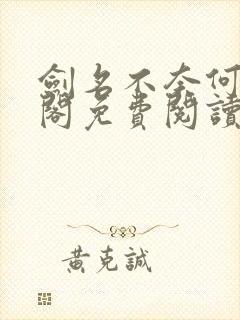 劍名不奈何
閣免費閱讀
黃克誠